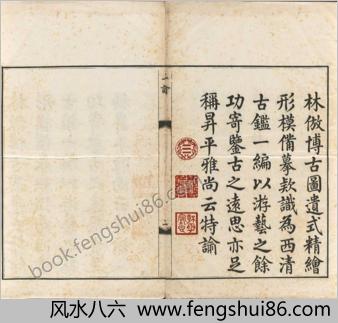 林倣博古圖遺式精繪
形模備摹欵識為西清
古鑑一編以游藝之餘
功寄鑒古之遠思亦足
稱昇平雅尚云特諭
上諭
二
book.fengshui86.com
风水八六 www.fengshui86.com